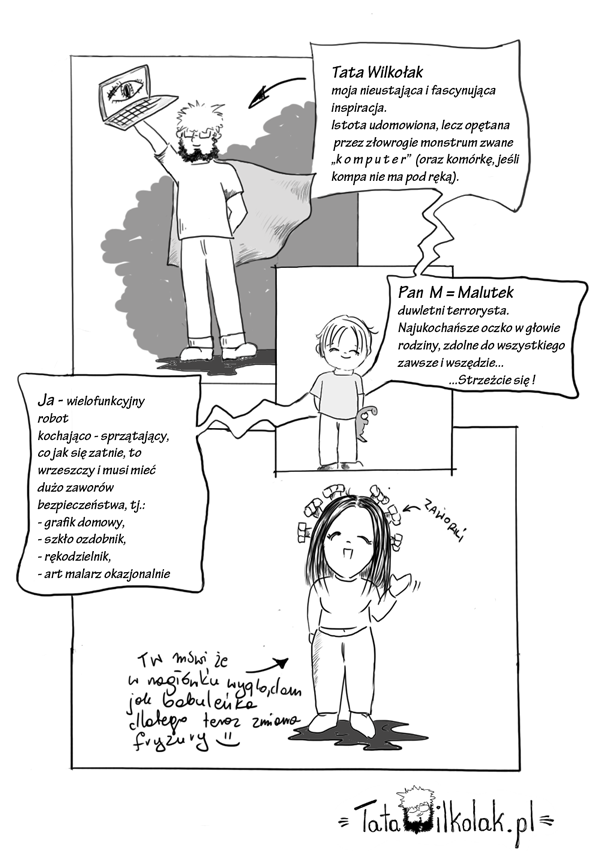 Tata Wilkołak
moja nieustająca i fascynująca
inspiracja.
Istota udomowiona, lecz opętana
przez złowrogie monstrum zwane
„k o m p u t e r” (oraz komórkę, jeśli
kompa nie ma pod ręką).
Pan M = Malutek
duwletni terrorysta.
Najukochańsze oczko w głowie
rodziny, zdolne do wszystkiego
zawsze i wszędzie...
...Strzeżcie się !
Ja - wielofunkcyjny
robot
kochająco - sprzątający,
co jak się zatnie, to
wrzeszczy i musi mieć
dużo zaworów
bezpieczeństwa, tj.:
- grafik domowy,
- szkło ozdobnik,
- rękodzielnik,
- art malarz okazjonalnie
ZAWORKI
TW mówi że
w nagłówku wyglądam
jak babuleńka
dlatego teraz zmiana
fryzury :)
TataWilkolak.pl